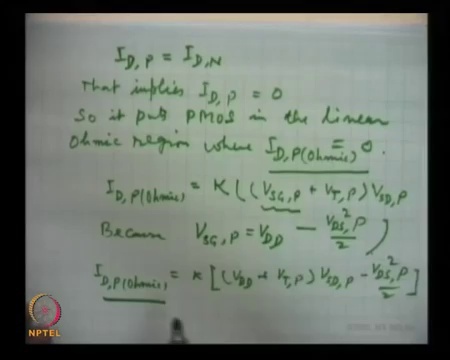 I_D,P = I_D,N
That implies I_D,P = 0
So it puts PMOS in the linear
Ohmic region where I_D,P(Ohmic) = 0.
I_D,P(Ohmic) = K((V_SG,P + V_T,P) V_SD,P
Because V_SG,P = V_DD - V_DS,P^2/2)
I_D,P(Ohmic) = K[(V_DD + V_T,P) V_SD,P - V_DS,P^2/2]
NPTEL